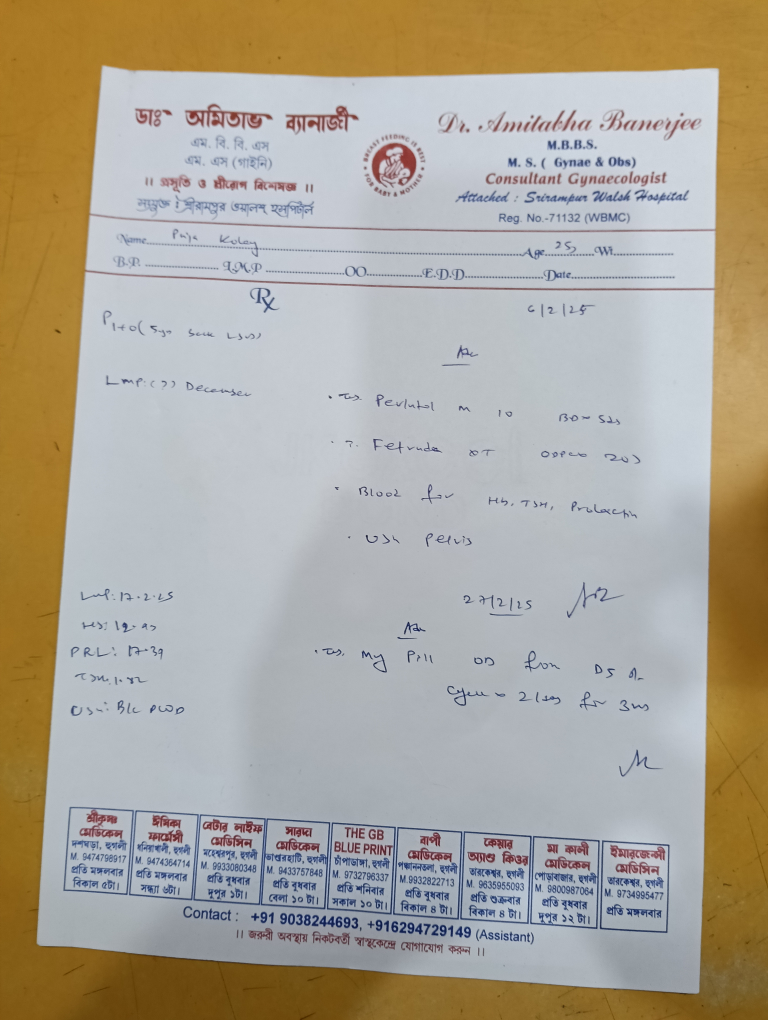 ডাঃ অমিতাভ ব্যানার্জী
এম. বি. বি. এস
এম. এস (গাইনি)
।। প্রসূতি ও স্ত্রীরোগ বিশেষজ্ঞ ।।
সংযুক্ত : শ্রীরামপুর ওয়ালশ হসপিটাল
BREAST FEEDING IS BEST FOR BABY & MOTHER
Dr. Amitabha Banerjee
M.B.B.S.
M. S. ( Gynae & Obs)
Consultant Gynaecologist
Attached : Srirampur Walsh Hospital
Reg. No.-71132 (WBMC)
Name Puja Koley Age 25 Wt.
B.P. L.M.P. OO E.D.D. Date
Rx
6/2/25
P1+0
Adv
LMP: December
Perlutal M 10 BD
T. Fetrude
Blood for Hb, TSH, Prolactin
USG Pelvis
27/2/25
LMP: 17.2.25
Adv
PRL: 17.39
My Pill OD from D5 of
cycle 21 for 3
USG: B/L PCOD
শ্রীকৃষ্ণ মেডিকেল
দশঘড়া, হুগলী
M. 9474798917
প্রতি মঙ্গলবার
বিকাল ৫টা।
ঈশিকা ফার্মেসী
ধনিয়াখালী, হুগলী
M. 9474364714
প্রতি মঙ্গলবার
সন্ধ্যা ৬টা।
বেটার লাইফ মেডিসিন
মহেশ্বরপুর, হুগলী
M. 9933060348
প্রতি বুধবার
দুপুর ১টা।
সারদা মেডিকেল
ভাণ্ডারহাটি, হুগলী
M. 9433757848
প্রতি বুধবার
বেলা ১০ টা।
THE GB BLUE PRINT
চাঁপাডাঙ্গা, হুগলী
M. 9732796337
প্রতি শনিবার
সকাল ১০ টা।
বাপী মেডিকেল
পঞ্চাননতলা, হুগলী
M.9932822713
প্রতি বুধবার
বিকাল ৪ টা।
কেয়ার অ্যাণ্ড কিওর
তারকেশ্বর, হুগলী
M. 9635955093
প্রতি শুক্রবার
বিকাল ৪ টা।
মা কালী মেডিকেল
পোড়াবাজার, হুগলী
M. 9800987064
প্রতি বুধবার
দুপুর ১২ টা।
ইমারজেন্সী মেডিসিন
তারকেশ্বর, হুগলী
M. 9734995477
প্রতি মঙ্গলবার
Contact : +91 9038244693, +916294729149 (Assistant)
।। জরুরী অবস্থায় নিকটবর্তী স্বাস্থ্যকেন্দ্রে যোগাযোগ করুন ।।